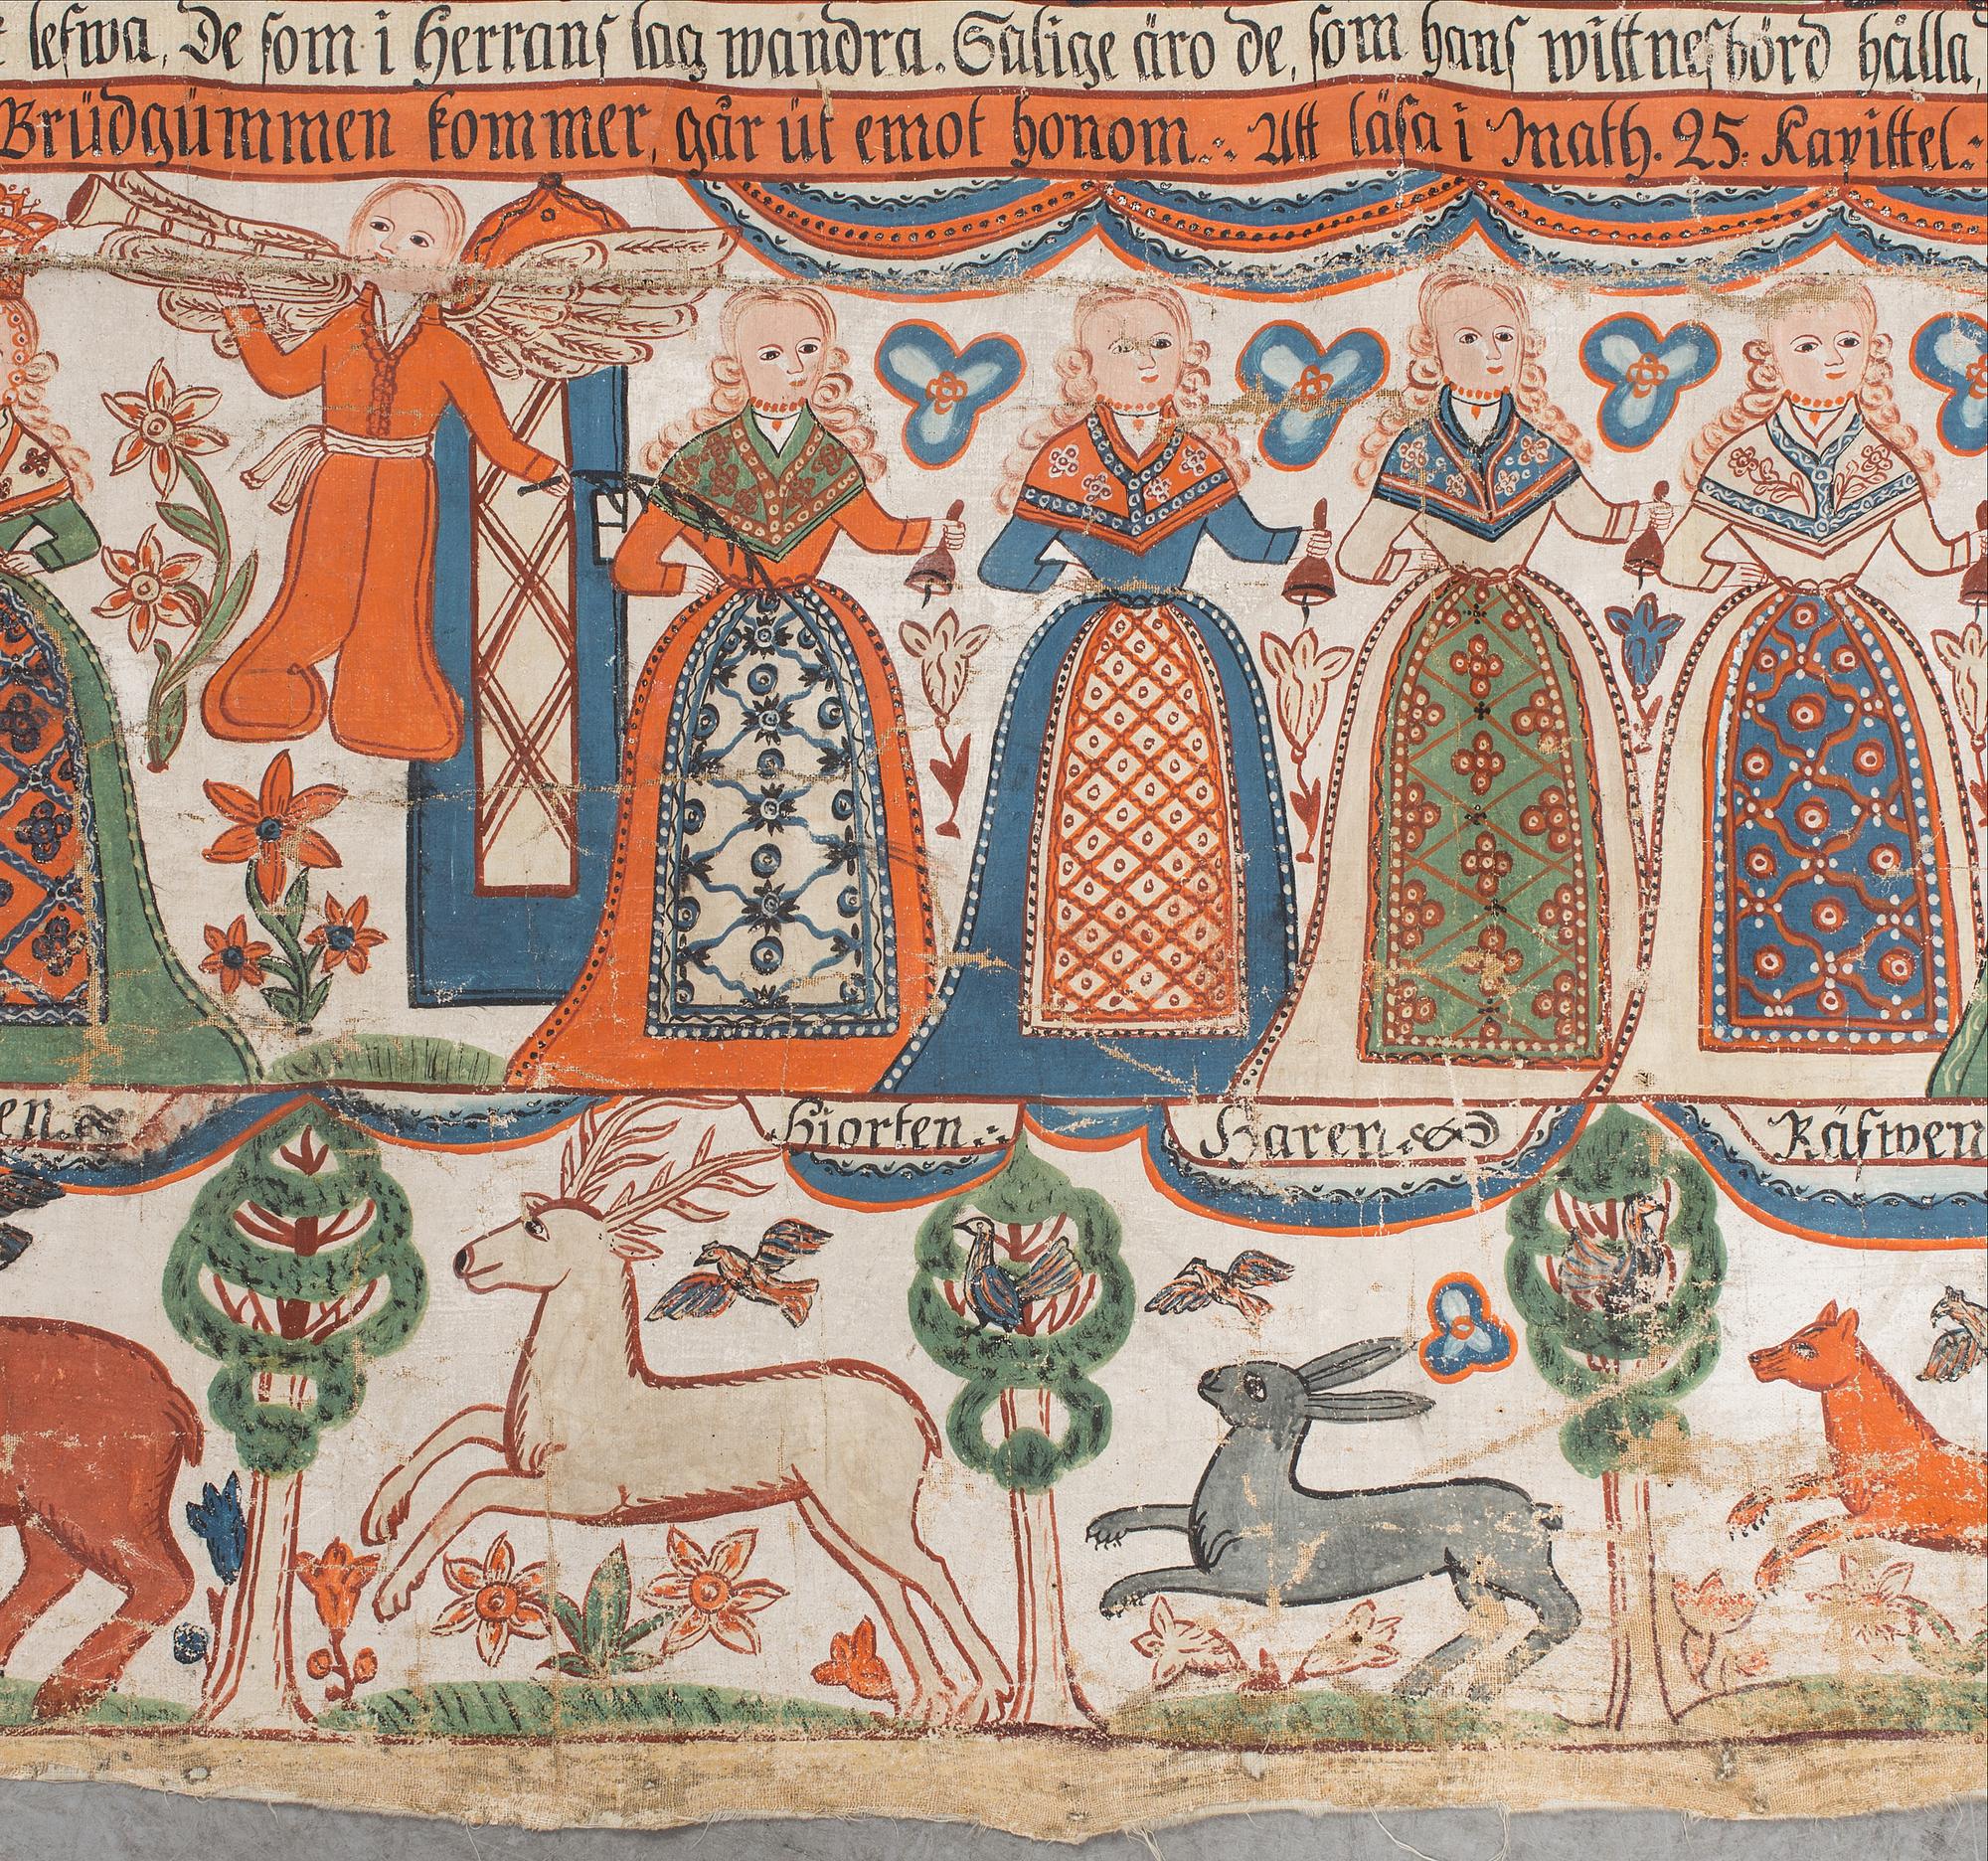 lefwa, De som i Herrans lag wandra. Salige äro de, som hans wittnesbörd hålla,
Brüdgümmen kommer, går üt emot honom.:. Att läsa i Math. 25. Kapittel.:
en.
Hiorten.:.
Haren.
Räfwen